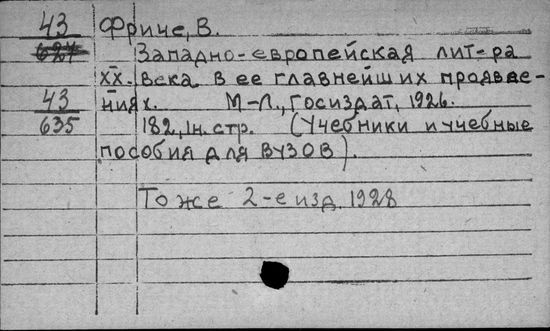 43 Фриче, В.
627 Западно-европейская лит-ра
XX-века в ее главнейших проявле-
43 ниях. М-Л., Госиздат, 1926.
635 182, 1н. стр. (Учебники и учебные
пособия для ВУЗОВ).
То же 2-е изд. 1928